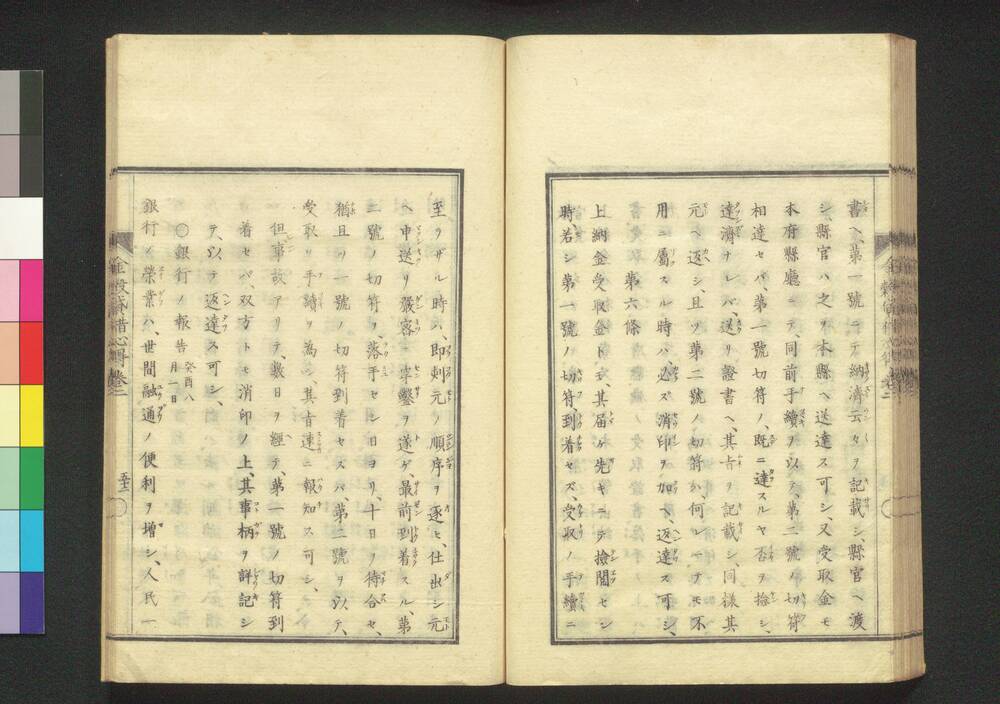 書ヘ、第一號ニテ納濟云々ヲ記載シ、縣官ヘ渡
シ、縣官ハ之ヲ本縣ヘ送達ス可シ、又受取金モ
本府縣廳ニテ同前手續ヲ以テ、第二號ノ切符
相達セバ、第一號切符ノ、既ニ達スルヤ否ヲ撿シ、
達濟ナレバ、送リ證書ヘ、其旨ヲ記載シ、同樣其
元ヘ返シ、且ツ第二號ノ切符ハ、何レニテモ不
用ニ屬スル時ハ、必ズ消印ヲ加ヘ、返達ス可シ、
第六條
上納金受取金トモ、其届ケ先キニテ撿閲セシ
時、若シ第一號ノ切符到着セズ、受取ノ手續ニ
至ラザル時ハ、即刻元ノ順序ヲ逐ヒ、仕出シ元
ヘ申送リ、嚴密ニ穿鑿ヲ遂ゲ、最前到着スル、第
二號ノ切符ヲ、落手セシ日ヨリ、十日ヲ待合セ、
猶且ツ一號ノ切符到着セズバ、第二號ヲ以テ、
受取リ手續ヲ為シ、其旨速ニ報知ス可シ、
但事故アリテ、數日ヲ經テ、第一號ノ切符到
着セバ、双方トモ消印ノ上、其事柄ヲ詳記シ
テ、以テ返達ス可シ、
〇銀行ノ報告 癸酉八月一日
銀行ノ榮業ハ、世間融通ノ便利ヲ増シ、人民一